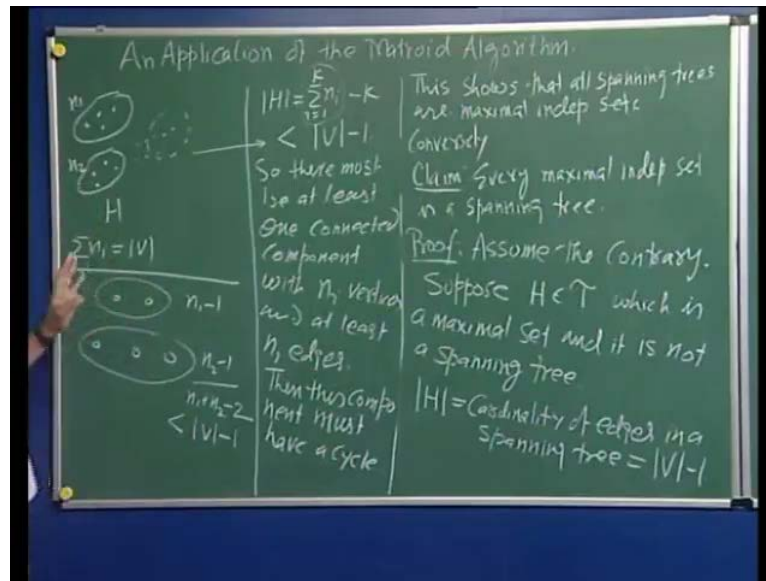 An Application of the Matroid Algorithm.
n1
n2
H
∑ n1 = |V|
n1-1
n2-1
n1+n2-2
< |V|-1
|H| = ∑ i=1 K ni - K
< |V|-1
So there most
be at least
One connected
Component
with ni vertices
and at least
ni edges.
Then this compo
nent must
have a cycle
This shows that all spanning trees
are maximal indep sets
Conversely
Claim Every maximal indep set
is a spanning tree.
Proof. Assume the Contrary.
Suppose H ∈ T which is
a maximal set and it is not
a spanning tree
|H| = Cardinality of edges in a
spanning tree = |V|-1